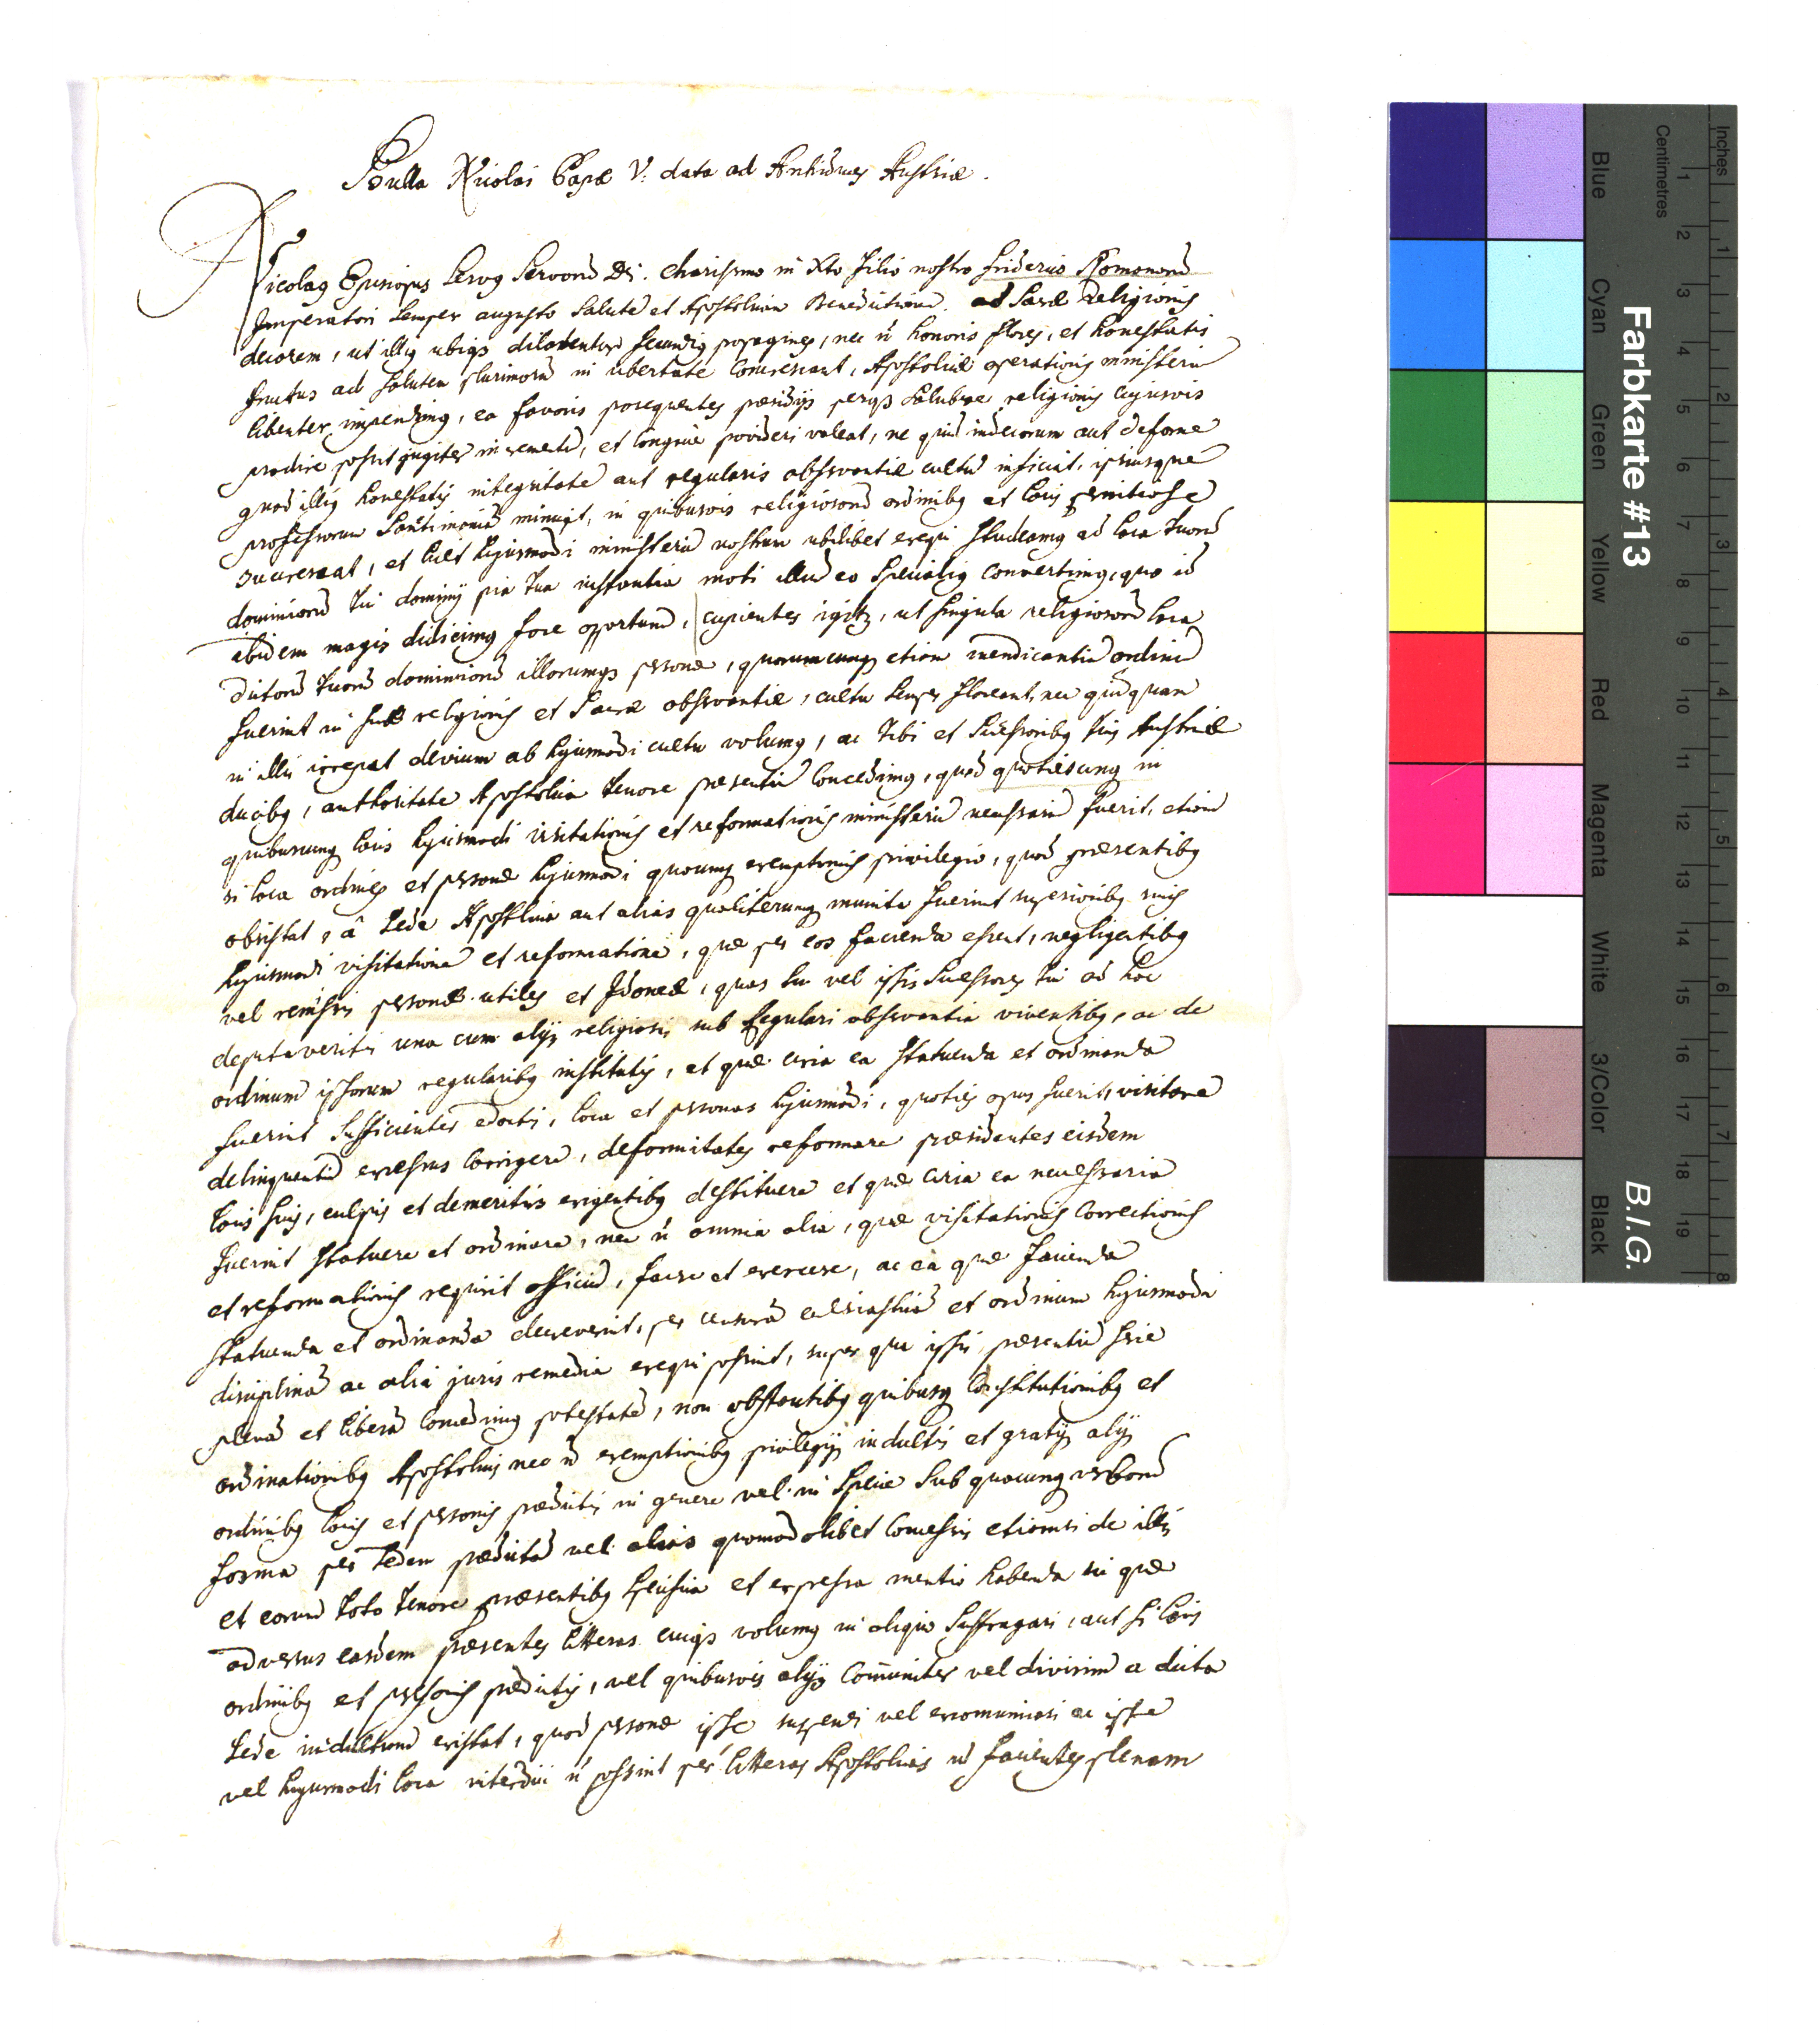 Bulla Nicolai Papæ V. data ad Archiduces Austriæ.
Nicolaq Episcopus Servq Servorū Di. Charissmo in Xto filio nostro Friderico Romanorū
Imperatori Semper augusto Salutē et Apostolicam Benedictionē. ad Sacræ Religionis
decorem, ut illiq ubiqȝ dilatentur fecundiq propagines, nec ñ honoris flores, et honestatis
fructus ad Salutem plurimorū in ubertate Concrescant, Apostolicæ operationis ministeriū
libenter impendimq, ea favoris prosequentes præsidijs perqȝ Salubræ religionis cujusvis
prodire possit jugiter incrementū, et Congruè provideri valeat, ne quid indecorum aut deforme
quod illiq honestatis integritatē aut regularis observantiæ cultū inficiat, ipsiusque
professorum Sanctimoniā minuat, in quibusvis religiosorū ordinibq et locis pernitiose
Succrescat, et licet hujusmodi ministeriū nostrum ubilibet exequi Studeamq ad loca tuorū
dominiorū tui dominij pia tua instantia moti illud eo Specialiq Convertimq, quo id
ibidem magis didicimq fore opportunū, cupientes igitȝ, ut singula religiosorū loca
dictorū tuorū dominiorū illorumqȝ personæ, quorumcunqȝ etiam mendicantiū ordinū
fuerint in suæ religionis et Sacræ observantiæ, cultu Semper floreant, nec quidquam
in illis irrepat devium ab hujusmodi cultu volumq, ac Tibi et Successoribq tuis Austriæ
ducibq, authoritate Apostolica tenore præsentiū Concedimq, quod quotiescunq in
quibuscunq locis hujusmodi visitationis et reformationis ministeriū necessariū fuerit, etiam
si loca ordines et personæ hujusmodi quocunq exemptionis privilegio, quod præsentibq
obsistat, â Sede Apostolica aut alias qualitercunq munita fuerint superioribq suis
hujusmodi visitationē et reformationē, quæ per eos facienda essent, negligentibq
vel remissis personæ utiles et Idoneæ, quas tu vel ipsi Successores tui ad hoc
deputaveritis una cum alijs religiosis sub Regulari observantia viventibq, ac de
ordinum ipsorum regularibq institutis, et quæ circa ea Statuenda et ordinanda
fuerint Sufficienter edocti, loca et personas hujusmodi, quoties opus fuerit, visitare
delinquentiū excessus Corrigere, deformitates reformare præsidentes eisdem
locis suis, culpis et demeritis exigentibq destituere et quæ circa ea necessaria
fuerint Statuere et ordinare, nec ñ omnia alia, quæ visitationis Correctionis
et reformationis requirit officiū, facere et exercere, ac ea quæ facienda
Statuenda et ordinanda decreverint, per censurā ecclesiasticā et ordinum hujusmodi
disciplinā ac alia juris remedia exequi possint, super quo ipsis præsentiū Serie
plenā et liberā Concedimq potestatē, non obstantibq quibusq Constitutionibq et
ordinationibq Apostolicis nec ñ exemptionibq privilegijs indultis et gratijs alijs
ordinibq locis et personis prædictis in genere vel in Specie Sub quacunq verborū
forma per Sedem prædictā vel alias quomodolibet Concessis etiamsi de illis
et eorum toto tenore præsentibq Specifica et expressa mentio habenda sit quæ
adversus easdem præsentes litteras cuiqȝ volumq in aliquo Suffragari, aut si locis
ordinibq et personis prædictis, vel quibusvis alijs Com̄uniter vel divisim a dicta
Sede indultum existat, quod personæ ipsæ suspendi vel excomunicari ac ipsa
vel hujusmodi loca interdici ñ possint per litteras Apostolicas ñ facientes plenam